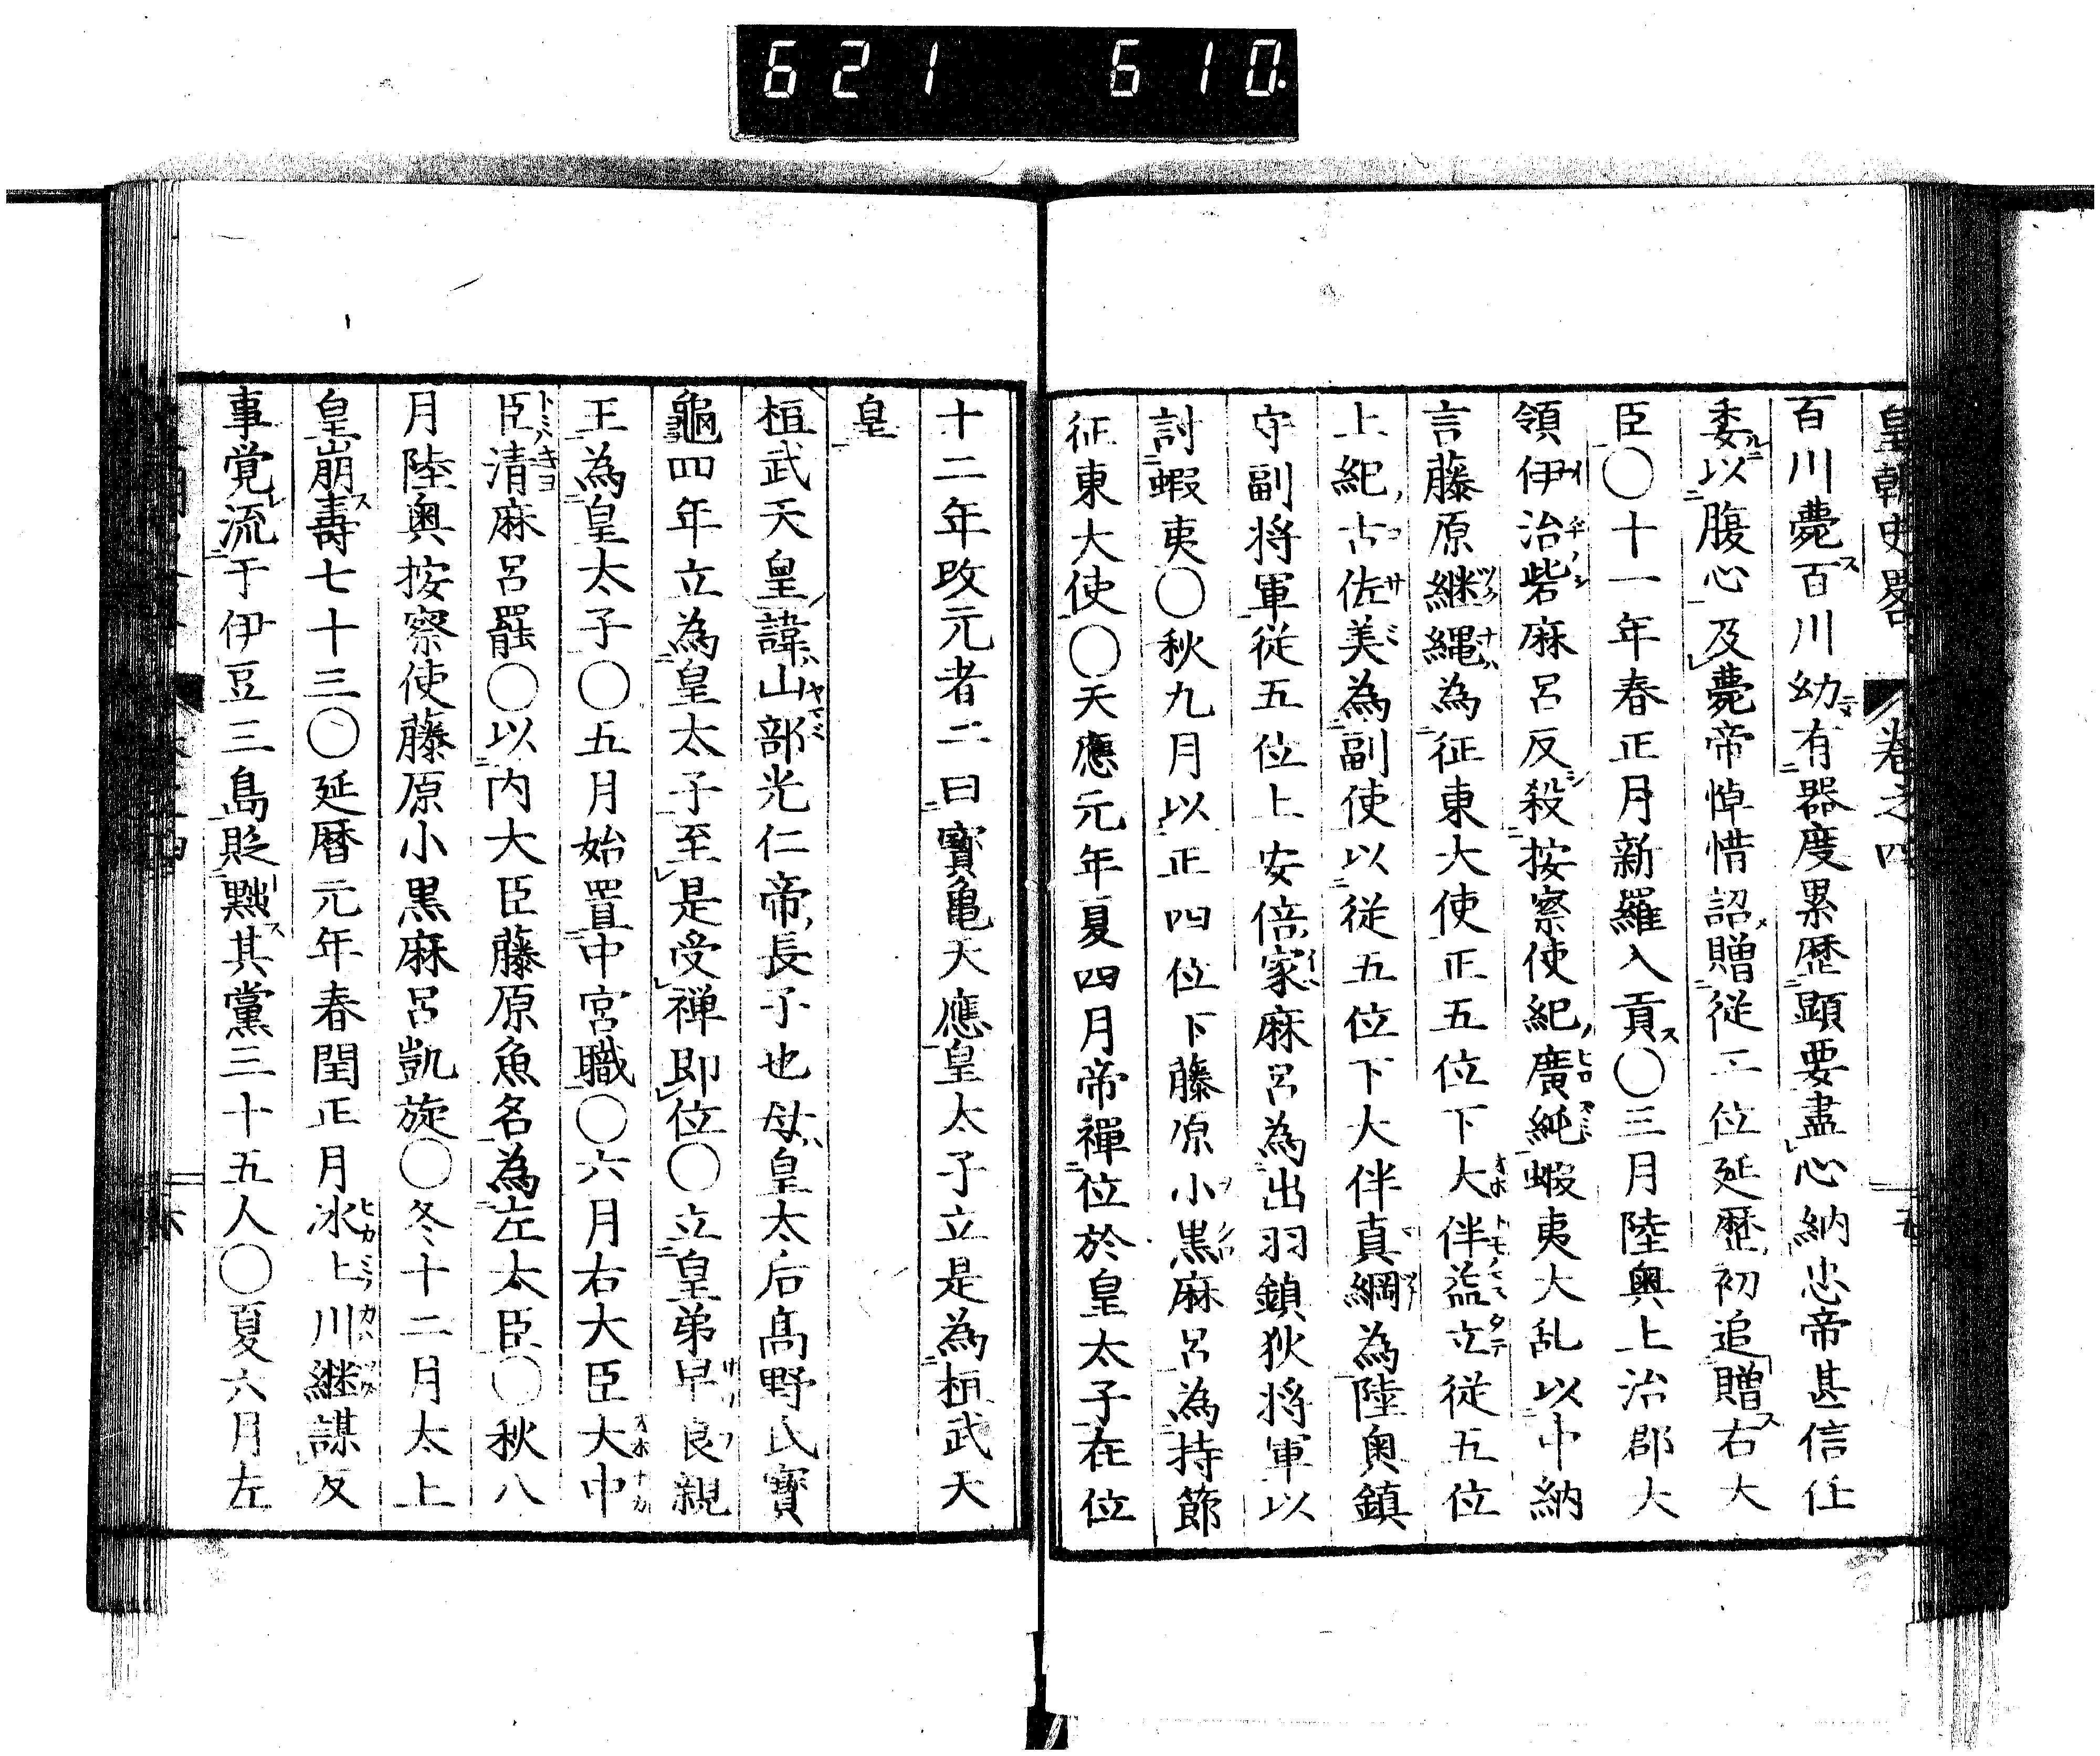 621 610.
皇朝史畧 卷之四
百川薨百川幼有器度累歴顕要盡心納忠帝甚信任
委以腹心及薨帝悼惜詔贈従二位延歴初追贈右大
臣〇十一年春正月新羅入貢〇三月陸奥上治郡大
領伊治呰麻呂反殺按察使紀廣純蝦夷大乱以中納
言藤原継縄為征東大使正五位下大伴益立従五位
上紀古佐美為副使以従五位下大伴真綱為陸奥鎮
守副将軍従五位上安倍家麻呂為出羽鎮狄将軍以
討蝦夷〇秋九月以正四位下藤原小黒麻呂為持節
征東大使〇天應元年夏四月帝禪位於皇太子在位
十二年改元者二曰寳亀天應皇太子立是為桓武天
皇
桓武天皇諱山部光仁帝長子也母皇太后髙野氏寳
龜四年立為皇太子至是受禅即位〇立皇弟早良親
王為皇太子〇五月始置中宮職〇六月右大臣大中
臣清麻呂罷〇以内大臣藤原魚名為左大臣〇秋八
月陸奥按察使藤原小黒麻呂凱旋〇冬十二月太上
皇崩壽七十三〇延暦元年春閏正月氷上川継謀反
事覚流于伊豆三島貶黜其黨三十五人〇夏六月左